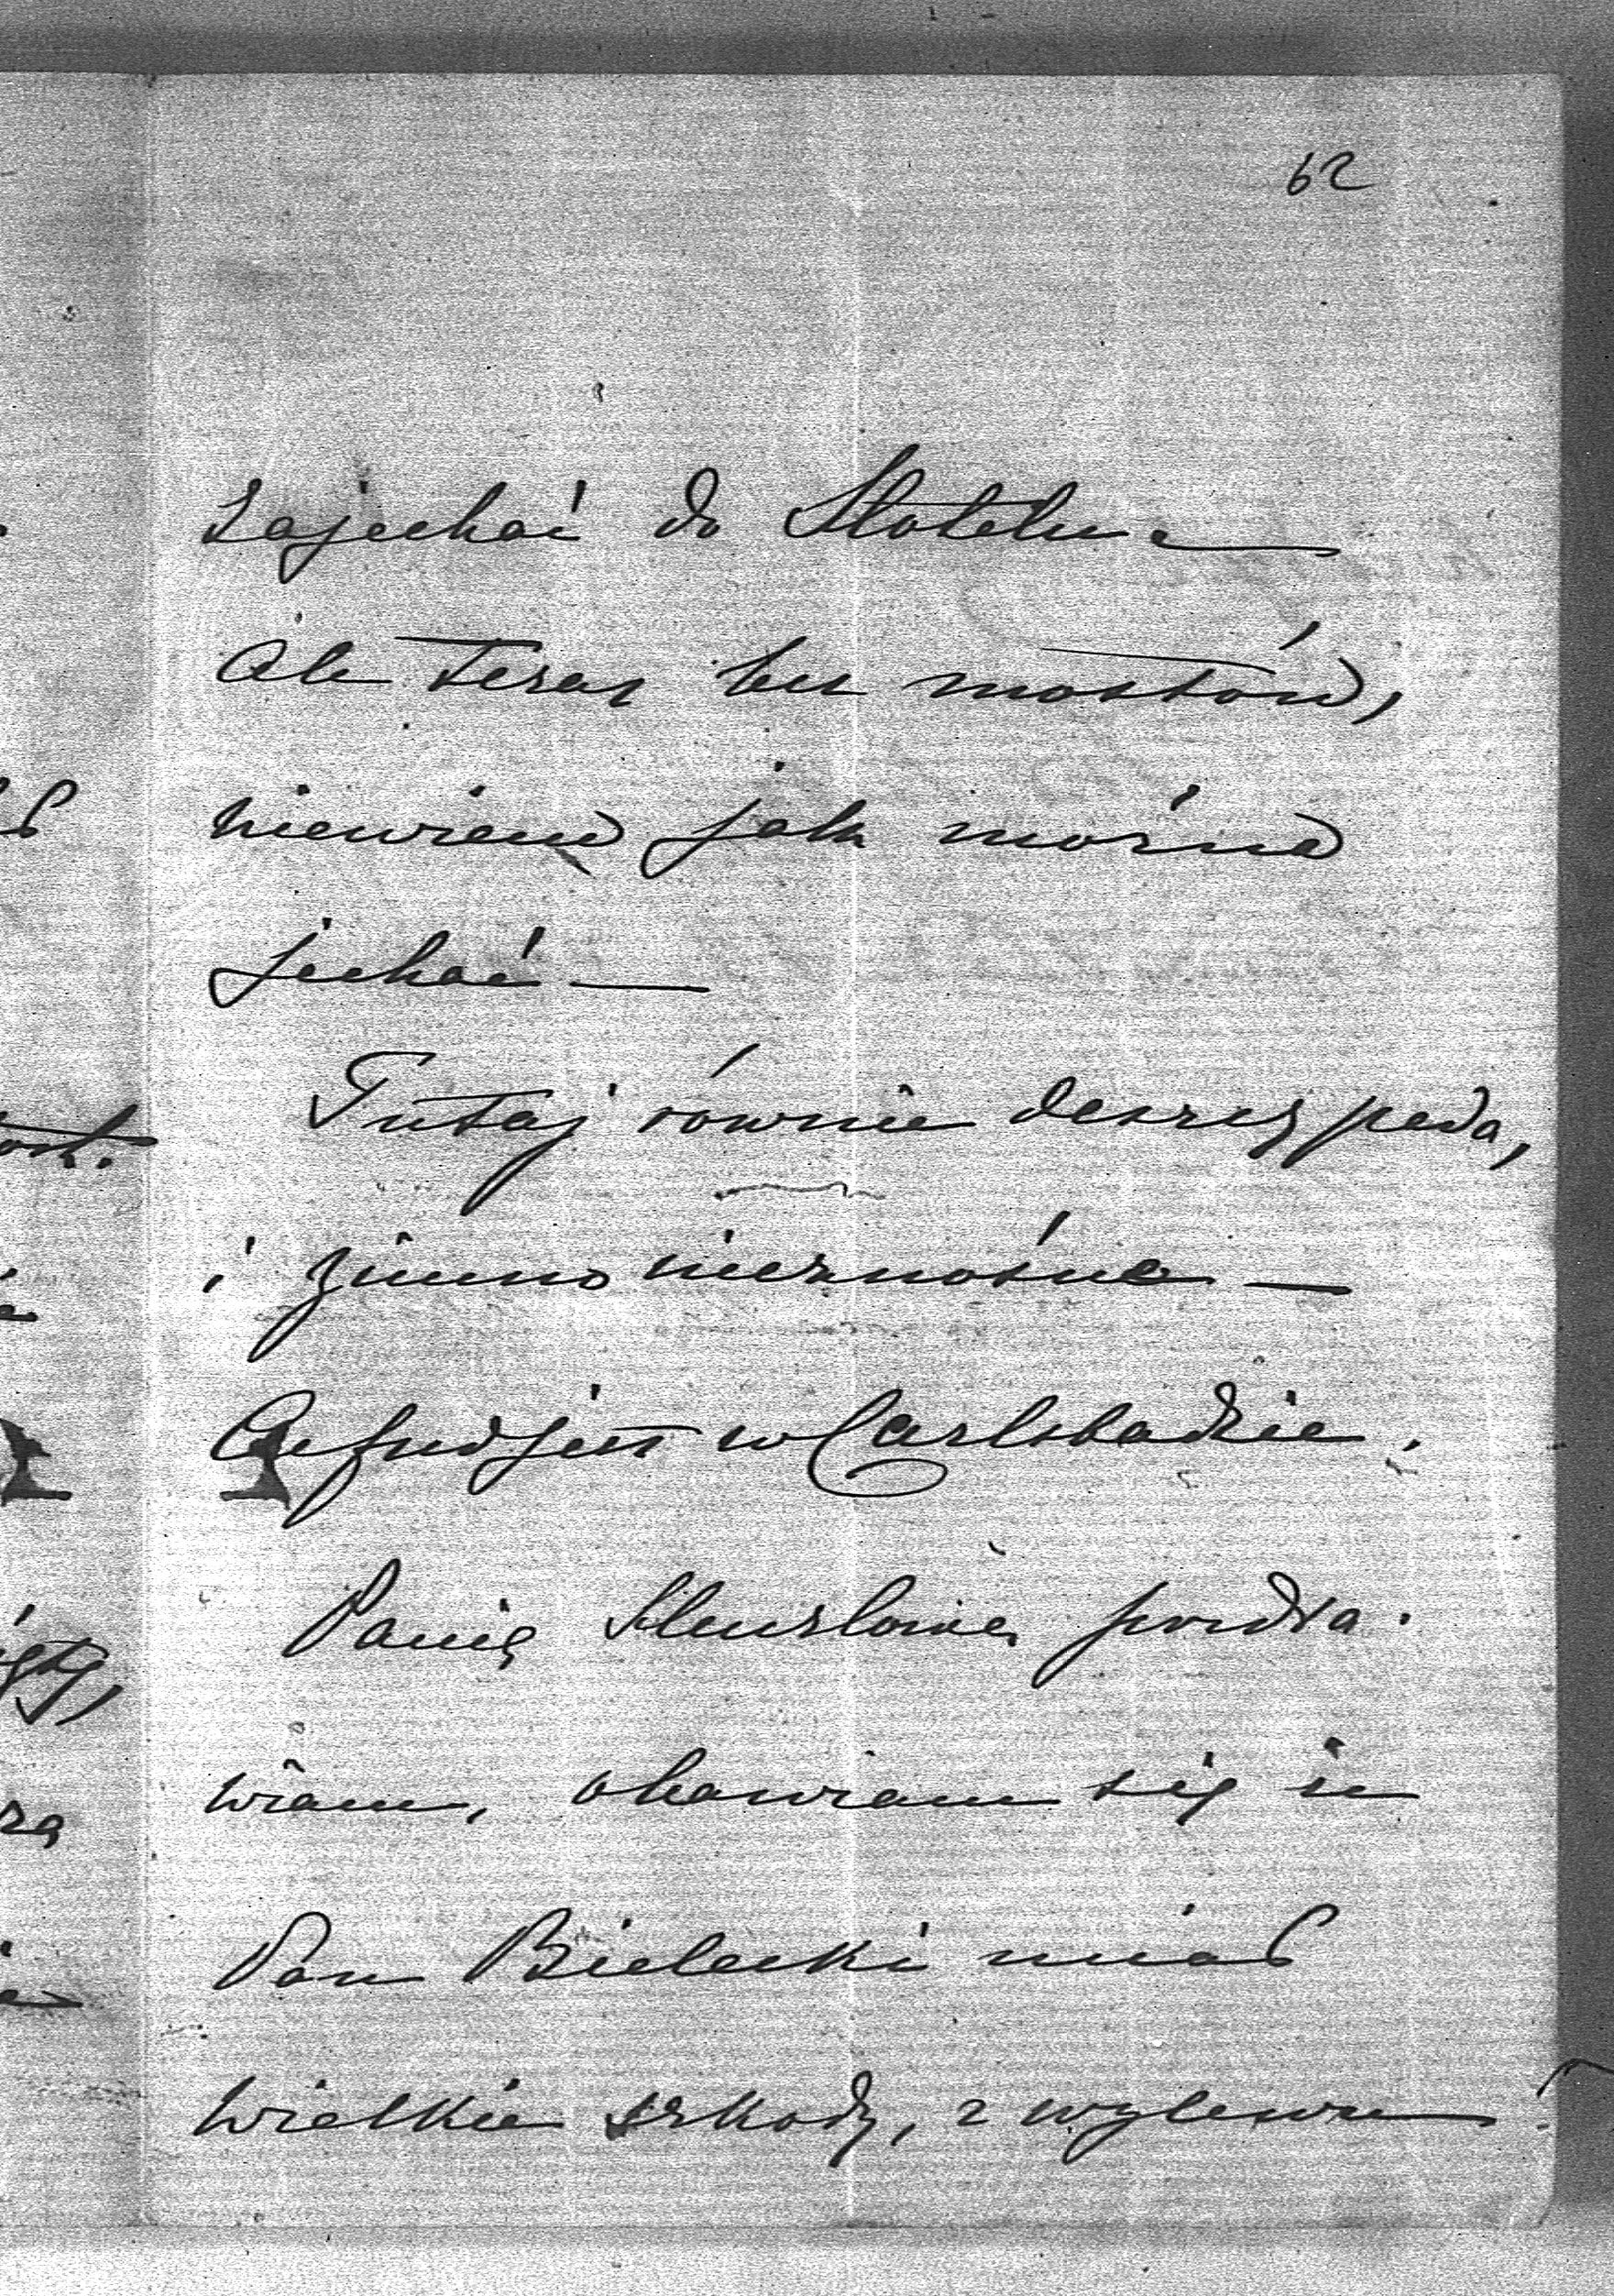 62
zajechać do Hotelu. —
Ale teraz bez mostów,
niewiem jak można
jechać —
Tutaj równie deszcz pada,
i zimno nieznośne —
jest w Carlsbadzie.
Panią pozdra-
wiam, obawiam się że
Pan Bielecki miał
wielkie szkody, z wylewu